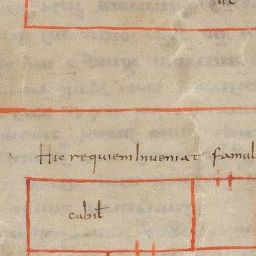 Hic requiem inveniat famul
cubil